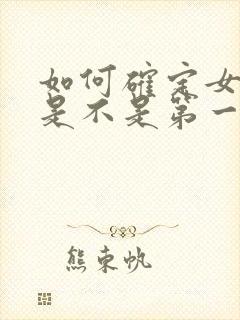 如何确定女
是不是第一
熊東帆